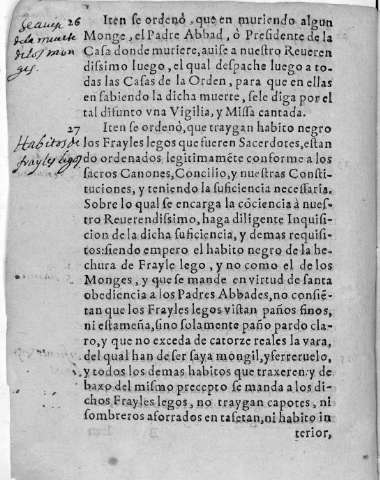 Iten se ordenò, que en muriendo algun
se auise 26
Monge, el Padre Abbad, ò Presidente de la
de la muerte
Casa donde muriere, auise a nuestro Reueren
de los mon
ges.
dissimo luego, el qual despache luego a to-
das las Casas de la Orden, para que en ellas
en sabiendo la dicha muerte, se le diga por el
tal difunto vna Vigilia, y Missa cantada.
27
Iten se ordenò, que traygan habito negro
Habitos de
los Frayles legos que fueren Sacerdotes, estan
frayles legos
do ordenados legitimamẽte conforme a los
sacros Canones, Concilio, y nuestras Consti-
tuciones, y teniendo la suficiencia necessaria.
Sobre lo qual se encarga la cõciencia à nues-
tro Reuerendissimo, haga diligente Inquisi-
cion de la dicha suficiencia, y demas requisi-
tos: siendo empero el habito negro de la he-
chura de Frayle lego, y no como el de los
Monges, y que se mande en virtud de santa
obediencia a los Padres Abbades, no consiẽ-
tan que los Frayles legos vistan paños finos,
ni estameña, sino solamente paño pardo cla-
ro, y que no exceda de catorze reales la vara,
del qual han de ser saya mongil, y ferreruelo,
y todos los demas habitos que traxeren: y de
baxo del mismo precepto se manda a los di-
chos Frayles legos, no traygan capotes, ni
sombreros aforrados en tafetan, ni habito in
terior,